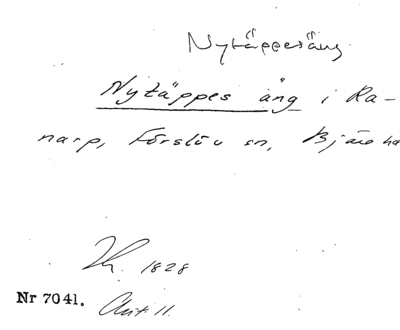 Nytäppesäng
Nytäppes äng i Ra-
narp, Förslöv sn, Bjäre hd
1828
Nr 7041. Akt 11.